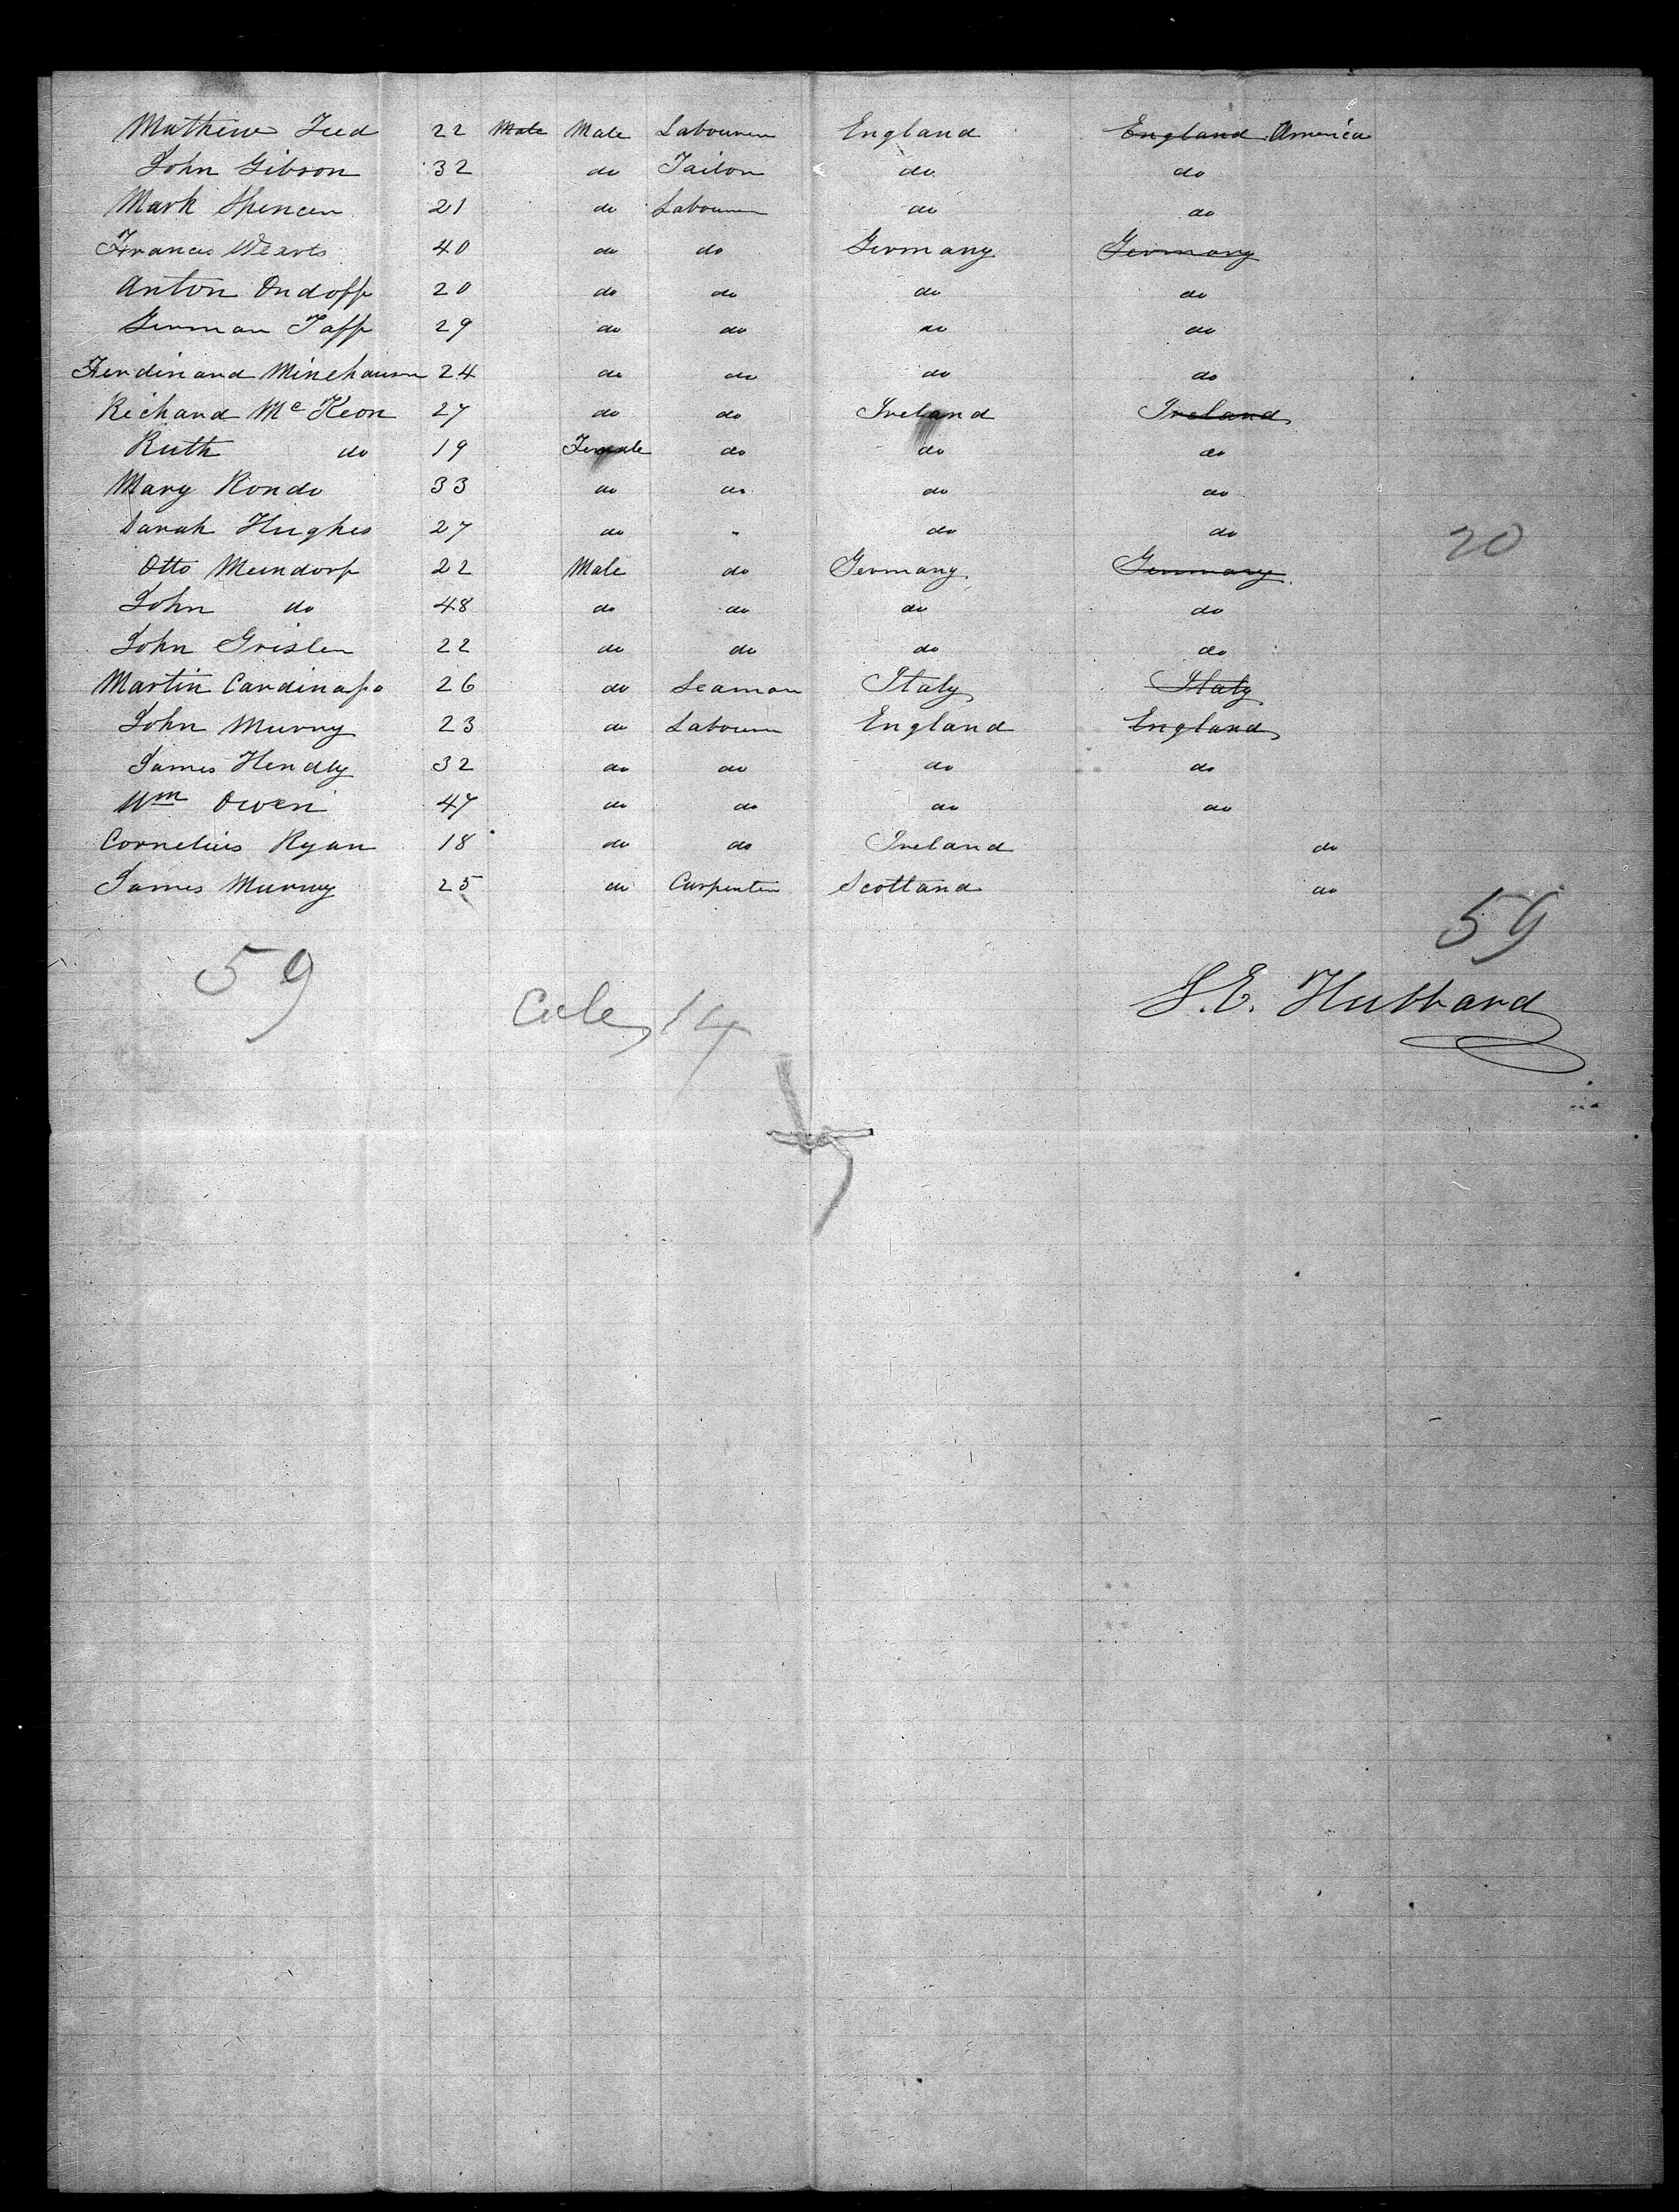 Mathew Teed 22 Male Male Labourer England England America
John Gibson 32 do Tailor do do
Mark Spencer 21 do Labourer do do
Frances Weerts 40 do do Germany Germany
Anton Ondoff 20 do do do do
German Taff 29 do do do do
Ferdinand Minehausen 24 do do do do
Richard Mc Keon 27 do do Ireland Ireland
Ruth do 19 Female do do do
Mary Rondo 33 do do do do
Sarah Hughes 27 do " do do
20
Otto Meindorf 22 Male do Germany Germany
John do 48 do do do do
John Grisler 22 do do do do
Martin Cardinapo 26 do Seaman Italy Italy
John Murry 23 do Labourer England England
James Hendly 32 do do do do
Wm Owen 47 do do do do
Cornelius Ryan 18 do do Ireland do
James Murray 25 do Carpenter Scotland do
59
59
14
S. E. Hubbard